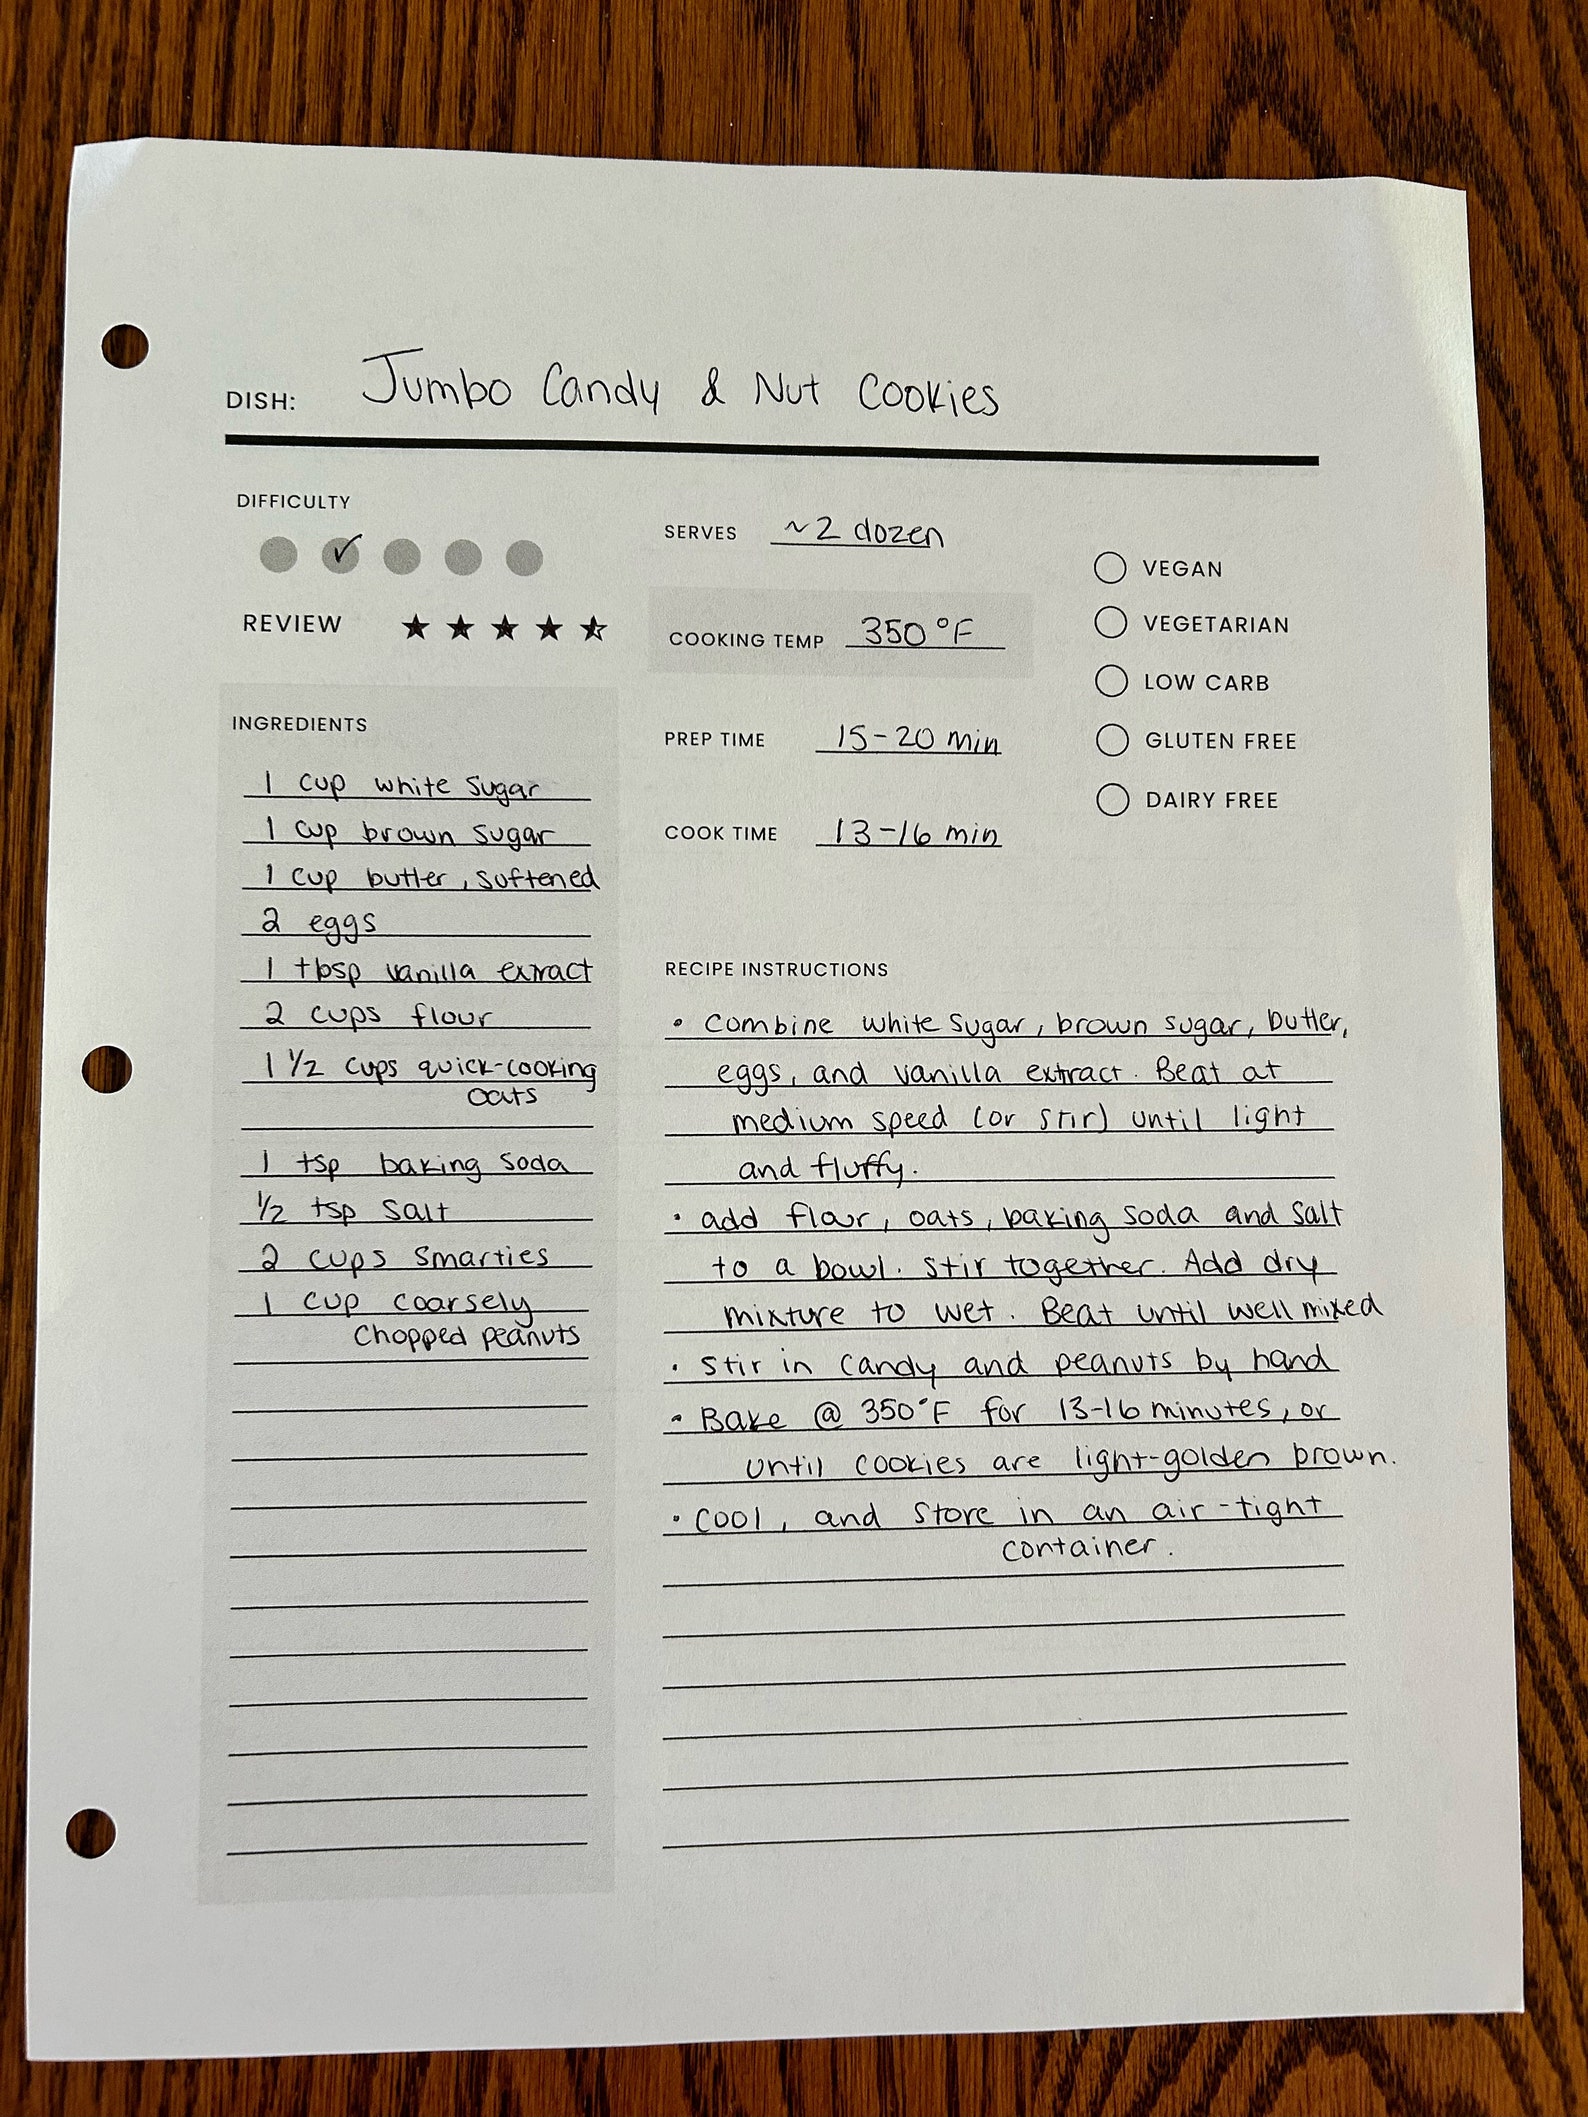 DISH: Jumbo Candy & Nut Cookies
DIFFICULTY
REVIEW
SERVES ~2 dozen
COOKING TEMP 350°F
PREP TIME 15-20 min
COOK TIME 13-16 min
VEGAN
VEGETARIAN
LOW CARB
GLUTEN FREE
DAIRY FREE
INGREDIENTS
1 cup white sugar
1 cup brown sugar
1 cup butter, softened
2 eggs
1 tbsp vanilla extract
2 cups flour
1 1/2 cups quick-cooking
oats
1 tsp baking soda
1/2 tsp salt
2 cups smarties
1 cup coarsely
chopped peanuts
RECIPE INSTRUCTIONS
• combine white sugar, brown sugar, butter,
eggs, and vanilla extract. Beat at
medium speed (or stir) until light
and fluffy.
• add flour, oats, baking soda and salt
to a bowl. Stir together. Add dry
mixture to wet. Beat until well mixed
• stir in candy and peanuts by hand
• Bake @ 350°F for 13-16 minutes, or
until cookies are light-golden brown.
• cool, and store in an air-tight
container.